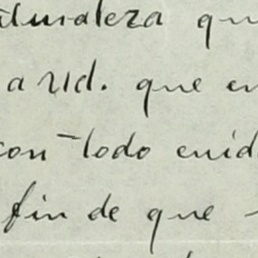 aturaleza qu
a Vd. que en
con todo cuid
fin de que